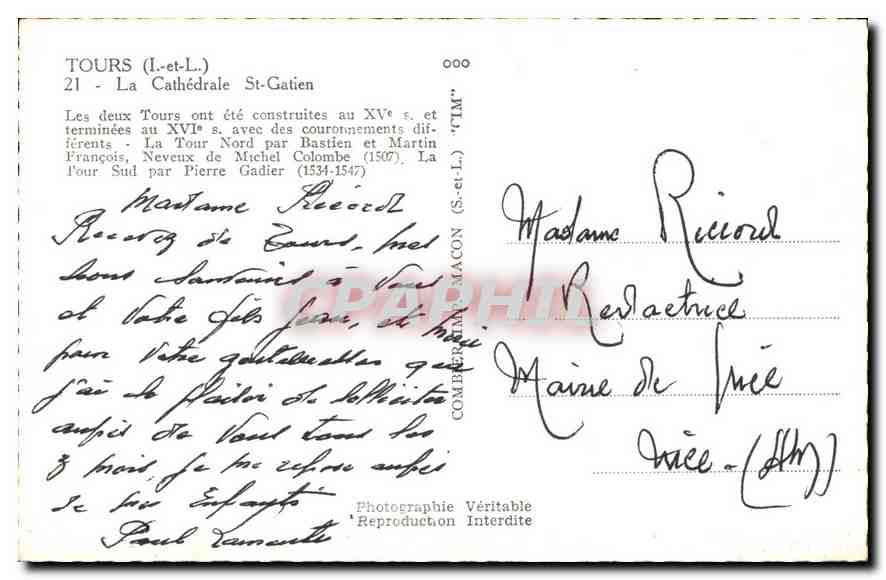 TOURS (I.-et-L.)
21 - La Cathédrale St-Gatien
Les deux Tours ont été construites au XVe s. et
terminées au XVIe s. avec des couronnements dif-
férents - La Tour Nord par Bastien et Martin
François, Neveux de Michel Colombe (1507). La
Tour Sud par Pierre Gadier (1534-1547)
Madame Riccord
Recevez de Tours, mes
bons souvenirs à Vous
et Votre fils Jean, et merci
pour Votre
j'ai le plaisir de solliciter
auprès de Vous tous les
3 mois, je me repose auprès
de mes Enfants
Paul
COMBIER IMP. MACON (S.-et-L.) "CIM"
Madame Riccord
Redactrice
Mairie de Nice
Nice - (AM)
Photographie Véritable
Reproduction Interdite
CPAPHIL